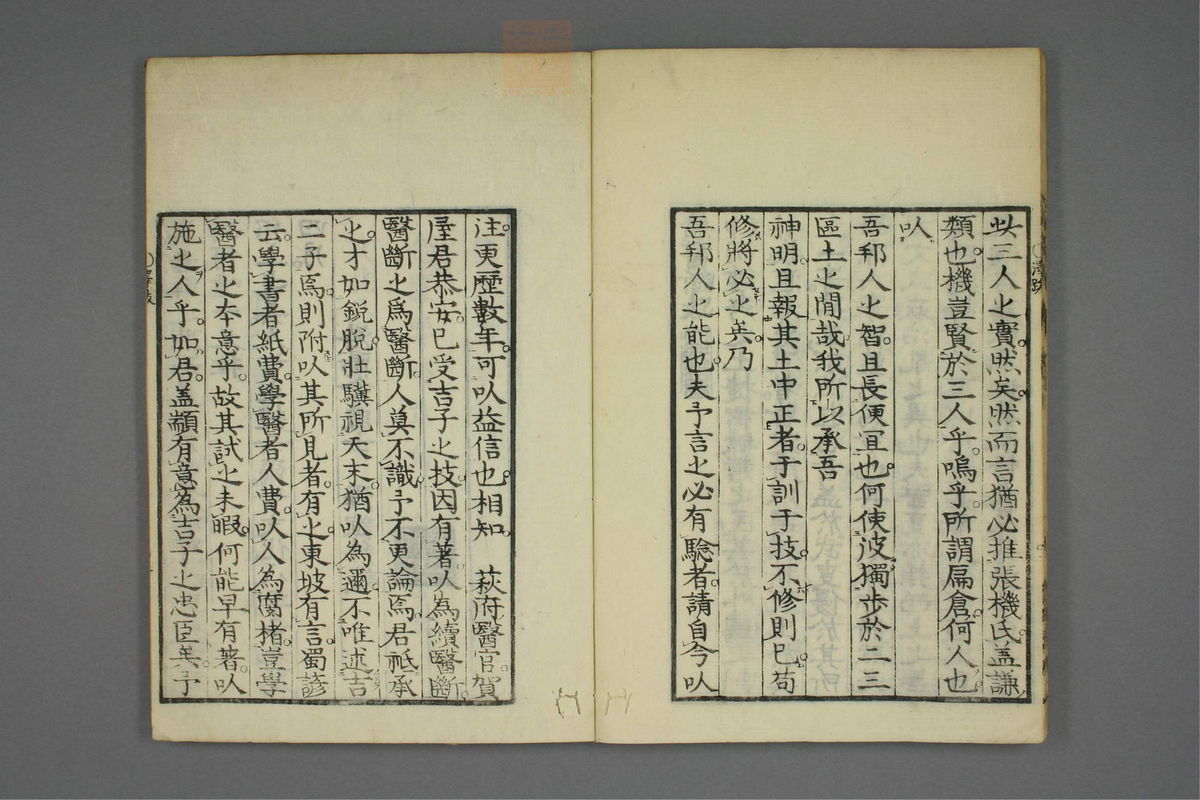 此三人之實然矣然而言猶必推張機氏盖謙
類也機豈賢於三人乎嗚乎所謂扁倉何人也
以
吾邦人之智且長便冝也何使彼獨步於二三
區土之閒哉我所以承吾
神明且報其土中正者于訓于技不修則已苟
修將必之矣乃
吾邦人之能也夫予言之必有驗者請自今以
往更歷數年可以益信也相知　萩府醫官賀
屋君恭安已受吉子之技因有著以為續醫斷
醫斷之爲醫斷人莫不識予不更論焉君祗承
之才如銳脫壯驥視天末猶以為邇不唯述吉
二子焉則附以其所見者有之東坡有言蜀諺
云學書者紙費學醫者人費以人為腐楮豈學
醫者之本意乎故其試之未暇何能早有著以
施之人乎如君盖顓有意為吉子之忠臣矣予